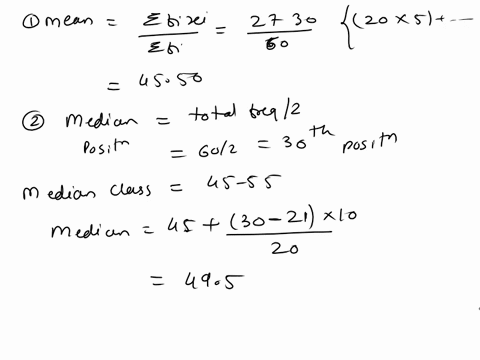 ① mean = Σfixi/Σfi = 2730/60 {(20×5)+---
= 45.50
② Median = total freq/2
Positn = 60/2 = 30th positn
median class = 45-55
median = 45 + (30-21)×10/20
= 49.5